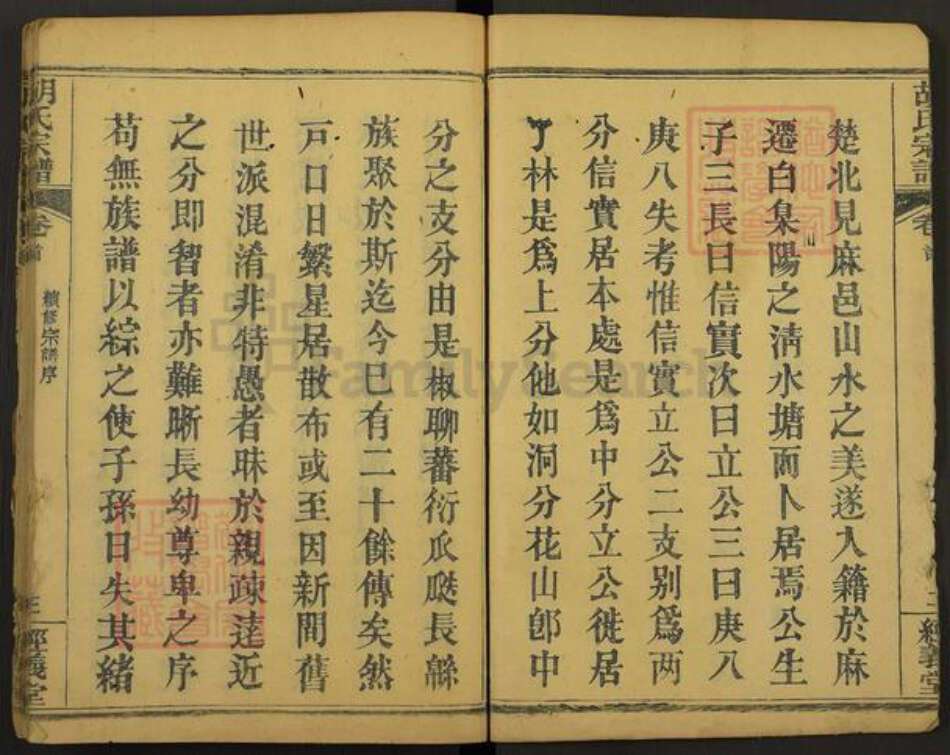 胡氏宗譜 卷首 二 經義堂
楚北見麻邑山水之美遂入籍於麻
遷白杲陽之清水塘而卜居焉公生
子三長曰信實次曰立公三曰庚八
庚八失考惟信實立公二支别爲兩
分信實居本處是爲中分立公徙居
了林是爲上分他如洞分花山郎中
分之支分由是椒聊蕃衍瓜瓞長緜
族聚於斯迄今巳有二十餘傳矣然
戸口日繁星居散布或至因新間舊
世派混淆非特愚者昧於親疎逺近
之分即智者亦難晰長幼尊卑之序
苟無族譜以綜之使子孫日失其緒
胡氏宗譜 卷首 續修宗譜序 三 經義堂
FamilySearch